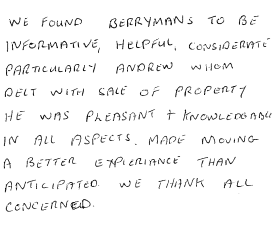 WE FOUND BERRYMANS TO BE
INFORMATIVE, HELPFUL, CONSIDERATE
PARTICULARLY ANDREW WHOM
DELT WITH SALE OF PROPERTY
HE WAS PLEASANT + KNOWLEDGABLE
IN ALL ASPECTS. MADE MOVING
A BETTER EXPIERIANCE THAN
ANTICIPATED. WE THANK ALL
CONCERNED.